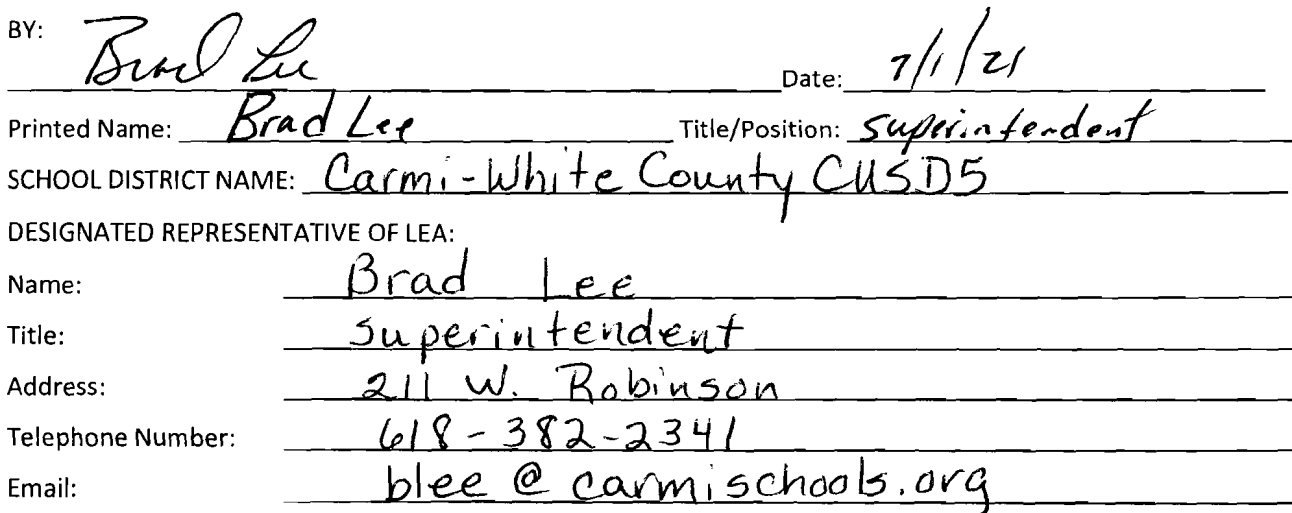 BY: Brad Lee Date: 7/1/21
Printed Name: Brad Lee Title/Position: Superintendent
SCHOOL DISTRICT NAME: Carmi-White County CUSD5
DESIGNATED REPRESENTATIVE OF LEA:
Name: Brad Lee
Title: Superintendent
Address: 211 W. Robinson
Telephone Number: 618-382-2341
Email: blee@carmischools.org